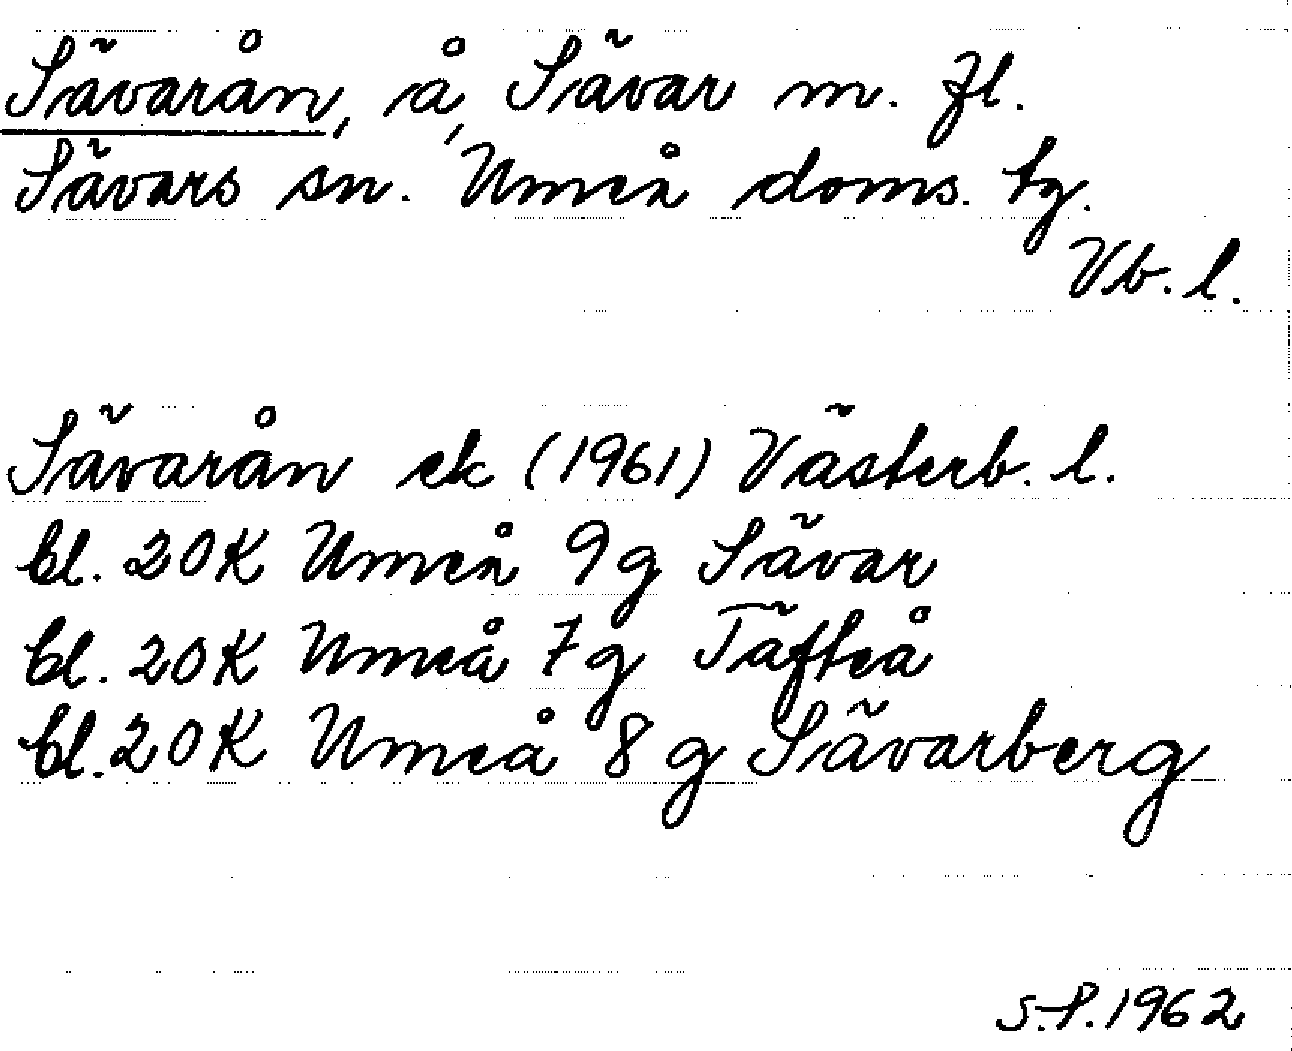 Sävarån, å, Sävar m. fl.
Sävars sn. Umeå doms. tg.
Vb. l.
Sävarån ek (1961) Västerb. l.
bl. 20K Umeå 9g Sävar
bl. 20K Umeå 7g Täfteå
bl. 20K Umeå 8g Sävarberg
S.P. 1962